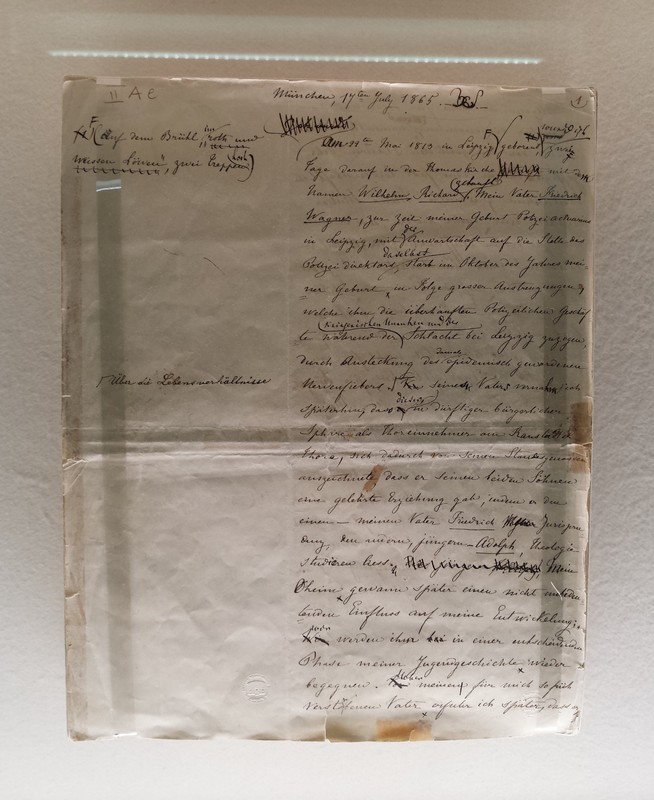 II A e
München, 17ten July 1865.
1
F Auf dem Brühl, im "roth und
weissen Löwen", zwei Treppen hoch
Am 22ten Mai 1813 in Leipzig F geboren, ward ich zwei
Tage darauf in der Thomaskirche mit dem
Namen Wilhelm Richard getauft. Mein Vater Friedrich
Wagner, zur Zeit meiner Geburt Polizeiactuarius
in Leipzig, mit der Anwartschaft auf die Stelle des
Polizeidirektors daselbst, starb im Oktober des Jahres mei-
ner Geburt, in Folge grosser Anstrengungen
welche ihm die überhäuften Polizeilichen Geschäf
te während der Kriegerischen Unruhen und der Schlacht bei Leipzig zuzogen,
durch Ansteckung des damals epidemisch gewordenen
Nervenfiebers.
Über die Lebensverhältnisse
seines Vaters vernahm ich
späterhin, dass dieser in dürftiger bürgerlicher
Sphäre als Thoreinnehmer am Ranstädter
Thore, sich dadurch von seinen Standesgenossen
auszeichnete dass er seinen beiden Söhnen
eine gelehrte Erziehung gab, indem er den
einen — meinen Vater Friedrich Jurispru
denz, den andern, jüngern — Adolph, Theologie
studieren liess. Mein
Oheim gewann später einen nicht unbedeu
tenden Einfluss auf meine Entwickelung;
wir werden ihm in einer entscheidenden
Phase meiner Jugendgeschichte wieder
begegnen. Über meinen für mich so früh
verstorbenen Vater erfuhr ich später, dass er